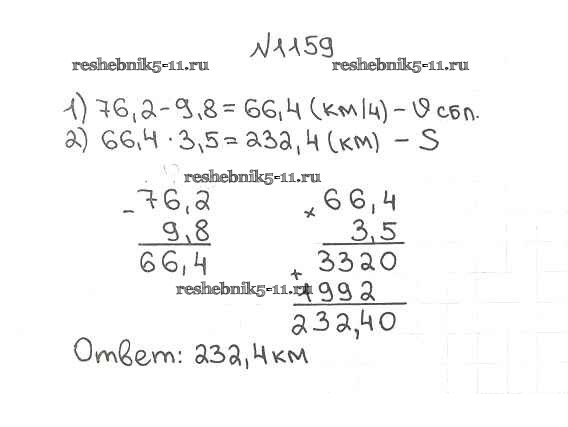 №1159
reshebnik5-11.ru reshebnik5-11.ru
1) 76,2 - 9,8 = 66,4 (км/ч) - υ сбл.
2) 66,4 · 3,5 = 232,4 (км) - S
reshebnik5-11.ru
- 76,2 × 66,4
9,8 3,5
66,4 + 3320
reshebnik5-11.ru 1992
232,40
Ответ: 232,4 км